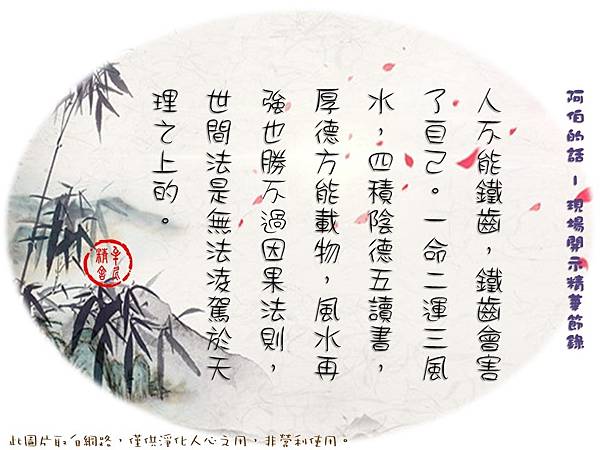 阿伯的話－現場開示精華節錄
人不能鐵齒，鐵齒會害
了自己。一命二運三風
水，四積陰德五讀書，
厚德方能載物，風水再
強也勝不過因果法則，
世間法是無法淩駕於天
理之上的。
精舍
此圖片取自網路，僅供淨化人心之用，非營利使用。